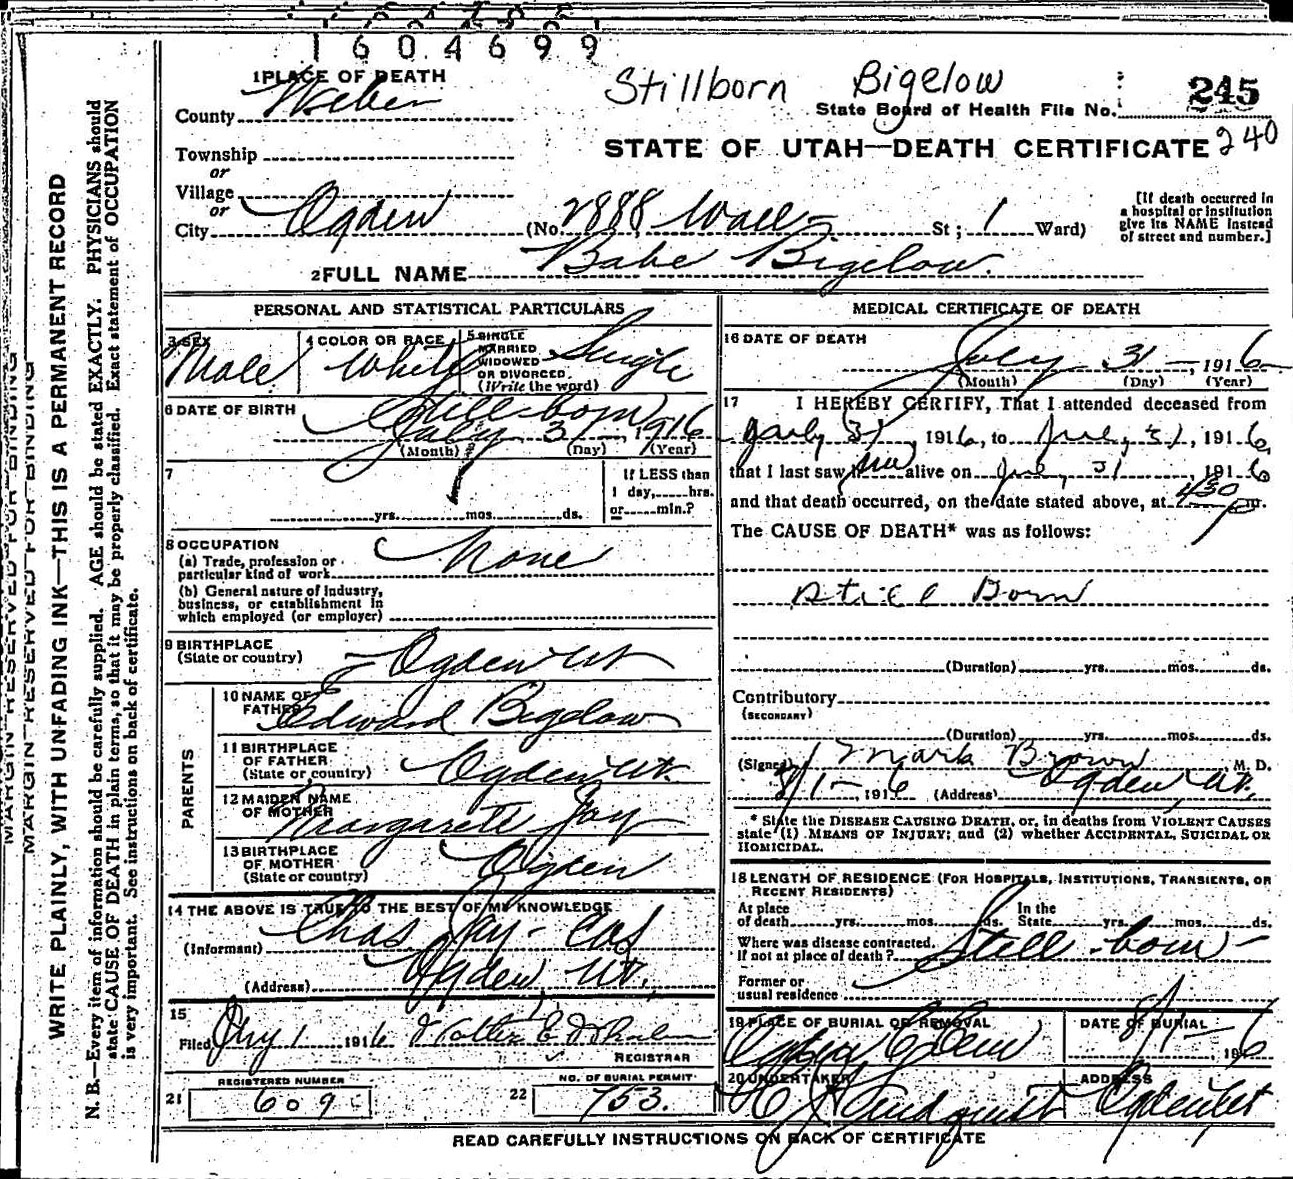 1604699
Stillborn Bigelow
245
State Board of Health File No.
240
STATE OF UTAH—DEATH CERTIFICATE
1 PLACE OF DEATH
County Weber
Township
or
Village
or
City Ogden (No 2888 Wall St; 1 Ward)
[If death occurred in a hospital or institution give its NAME instead of street and number.]
2 FULL NAME Babe Bigelow.
PERSONAL AND STATISTICAL PARTICULARS
3 SEX Male
4 COLOR OR RACE White
5 SINGLE MARRIED WIDOWED OR DIVORCED (Write the word) Single
6 DATE OF BIRTH Still born
July 31, 1916
(Month) (Day) (Year)
7
If LESS than
1 day, hrs.
yrs. mos. ds. or min.?
8 OCCUPATION None
(a) Trade, profession or particular kind of work
(b) General nature of industry, business, or establishment in which employed (or employer)
9 BIRTHPLACE (State or country) Ogden Ut
PARENTS
10 NAME OF FATHER Edward Bigelow
11 BIRTHPLACE OF FATHER (State or country) Ogden Ut.
12 MAIDEN NAME OF MOTHER Margarett Jay
13 BIRTHPLACE OF MOTHER (State or country) Ogden
14 THE ABOVE IS TRUE TO THE BEST OF MY KNOWLEDGE
(Informant) Chas. Jay
(Address) Ogden, Ut.
15
Filed 1 1916
REGISTRAR
21 REGISTERED NUMBER 609
22 NO. OF BURIAL PERMIT 753.
MEDICAL CERTIFICATE OF DEATH
16 DATE OF DEATH
July 31, 1916
(Month) (Day) (Year)
17 I HEREBY CERTIFY, That I attended deceased from
July 31, 1916, to July 31, 1916,
that I last saw him alive on July 31, 1916
and that death occurred, on the date stated above, at 430 P m.
The CAUSE OF DEATH* was as follows:
Still Born
(Duration) yrs. mos. ds.
Contributory
(SECONDARY)
(Duration) yrs. mos. ds.
(Signed) Mark Brown M. D.
8/1—, 1916 (Address) Ogden, Ut.
* State the DISEASE CAUSING DEATH, or, in deaths from VIOLENT CAUSES state (1) MEANS OF INJURY; and (2) whether ACCIDENTAL, SUICIDAL OR HOMICIDAL.
18 LENGTH OF RESIDENCE (FOR HOSPITALS, INSTITUTIONS, TRANSIENTS, OR RECENT RESIDENTS)
At place of death yrs. mos. ds. In the State yrs. mos. ds.
Where was disease contracted, if not at place of death? Still-born
Former or usual residence
19 PLACE OF BURIAL OR REMOVAL Ogden
DATE OF BURIAL 8/1— 1916
20 UNDERTAKER Lindquist
ADDRESS Ogden Ut
READ CAREFULLY INSTRUCTIONS ON BACK OF CERTIFICATE
MARGIN RESERVED FOR BINDING
MARGIN RESERVED FOR BINDING
WRITE PLAINLY, WITH UNFADING INK—THIS IS A PERMANENT RECORD
N. B.—Every item of information should be carefully supplied. AGE should be stated EXACTLY. PHYSICIANS should
state CAUSE OF DEATH in plain terms, so that it may be properly classified. Exact statement of OCCUPATION
is very important. See instructions on back of certificate.